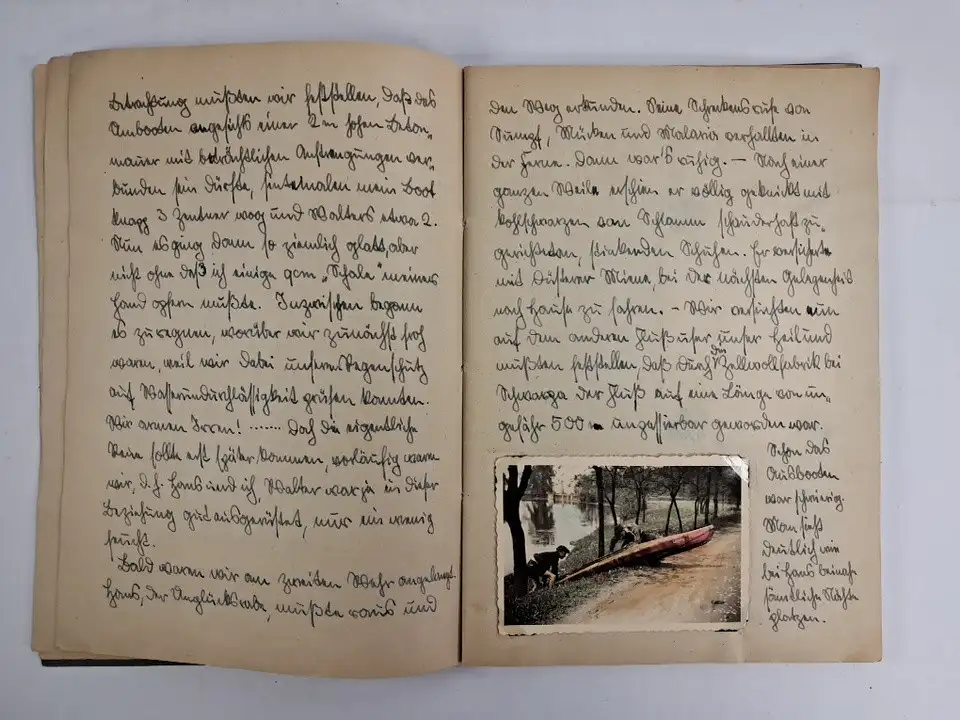 Betrachtung mußten wir feststellen, daß das
Umbooten angesichts einer 2 m hohen Beton-
mauer mit beträchtlichen Anstrengungen ver-
bunden sein dürfte, sintemalen mein Boot
knapp 3 Zentner wog und Walters etwa 2.
Nun es ging dann so ziemlich glatt, aber
nicht ohne daß ich einige qcm „Schale" meiner
Hand opfern mußte. Inzwischen begann
es zu regnen, worüber wir zunächst froh
waren, weil wir dabei unseren Regenschutz
auf Wasserundurchlässigkeit prüfen konnten.
Wir armen Irren! ....... Doch die eigentliche
Pein sollte erst später kommen, vorläufig waren
wir, d.h. Hans und ich, Walter war ja in dieser
Beziehung gut ausgerüstet, nur ein wenig
feucht.
Bald waren wir am zweiten Wehr angelangt.
Hans, der Unglücksrabe, mußte raus und
den Weg erkunden. Seine Schreckensrufe von
Sumpf, Mücken und Malaria verhallten in
der Ferne. Dann war's ruhig. – Nach einer
ganzen Weile erschien er völlig geknickt mit
kohlschwarzen vom Schlamm schauderhaft zu-
gerichteten, stinkenden Schuhen. Er versicherte
mit düsterer Miene, bei der nächsten Gelegenheit
nach Hause zu fahren. – Wir versuchten nun
auf dem anderen Flußufer unser Heil und
mußten feststellen, daß durch die Zellwollfabrik bei
Schwarza der Fluß auf eine Länge von un-
gefähr 500 m unpassierbar geworden war.
Schon das
Ausbooten
war schwierig.
Man sieht
deutlich wie
bei Hans beinah
sämtliche Nähte
platzen.